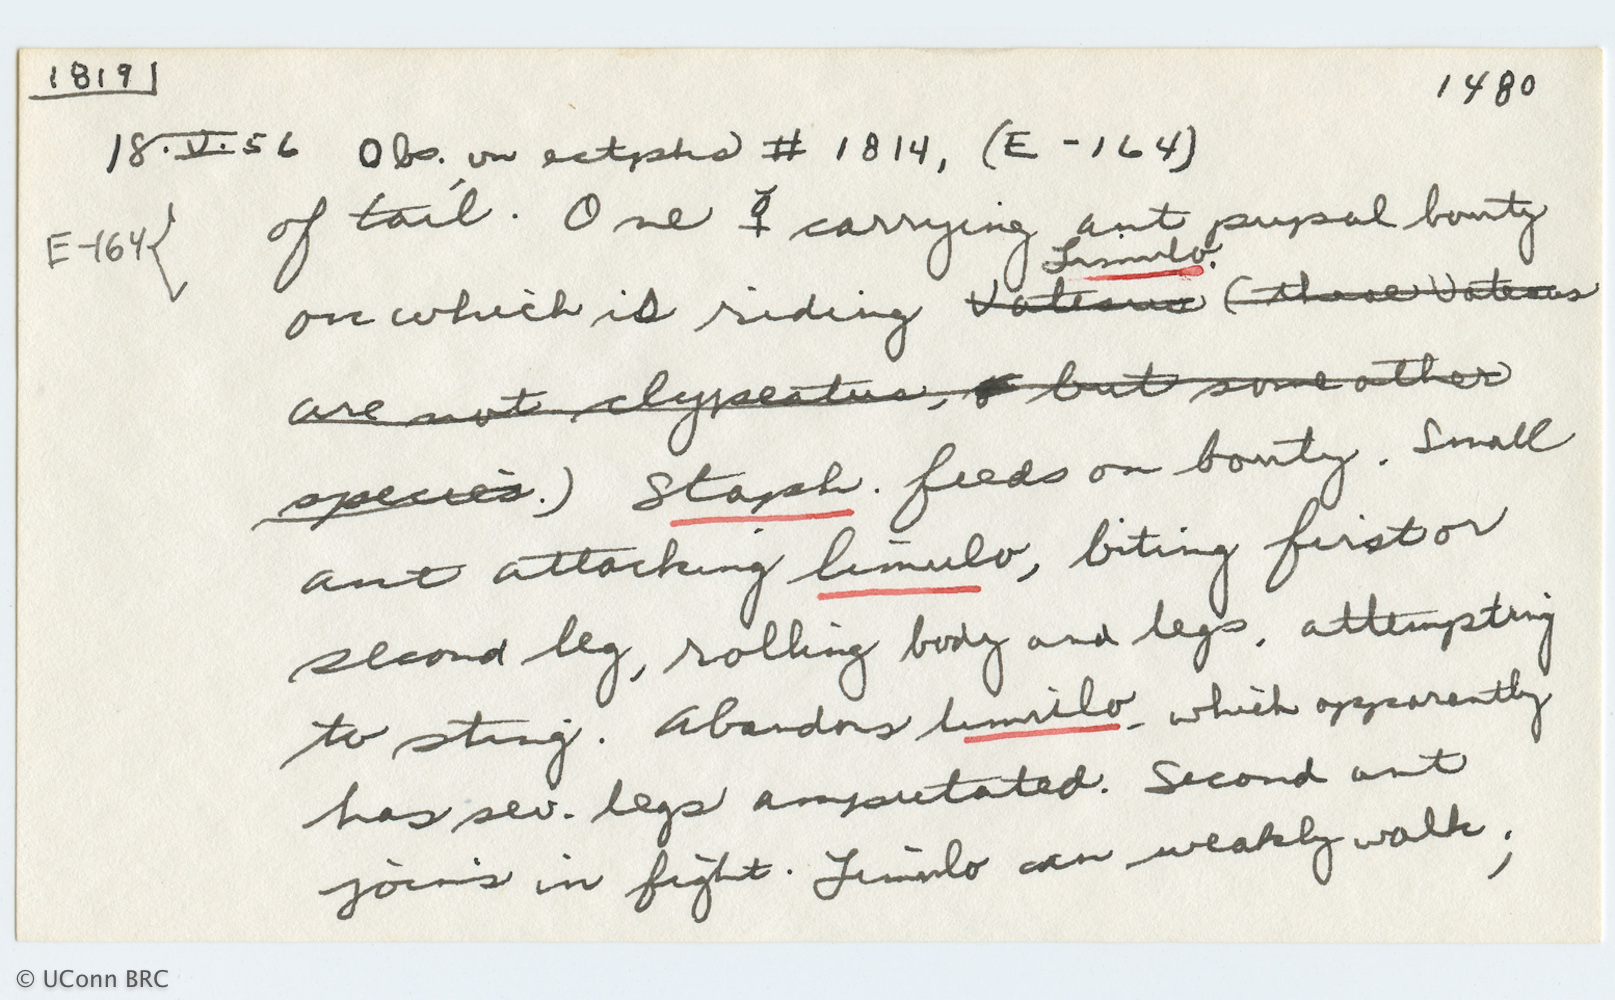 1819
1480
18.V.56 Obs. on ectphs # 1814, (E-164)
E-164{ of tail. One ☿ carrying ant pupal booty
Limulo.
on which is riding Vatesus (these Vatesus
are not clypeatus, but some other
species.) Staph. feeds on booty. Small
ant attacking limulo, biting first or
second leg, rolling body and legs, attempting
to sting. Abandons limulo, which apparently
has sev. legs amputated. Second ant
joins in fight. Limulo can weakly walk;
© UConn BRC